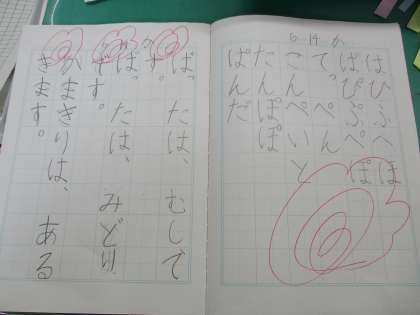 5 14 か
はひふへほ
ぱぴぷぺぽ
てっぺん
こんぺいと
たんぽぽ
ぱんだ
ばったは、むしで
す。
ばったは、みどり
です。
かまきりは、ある
きます。